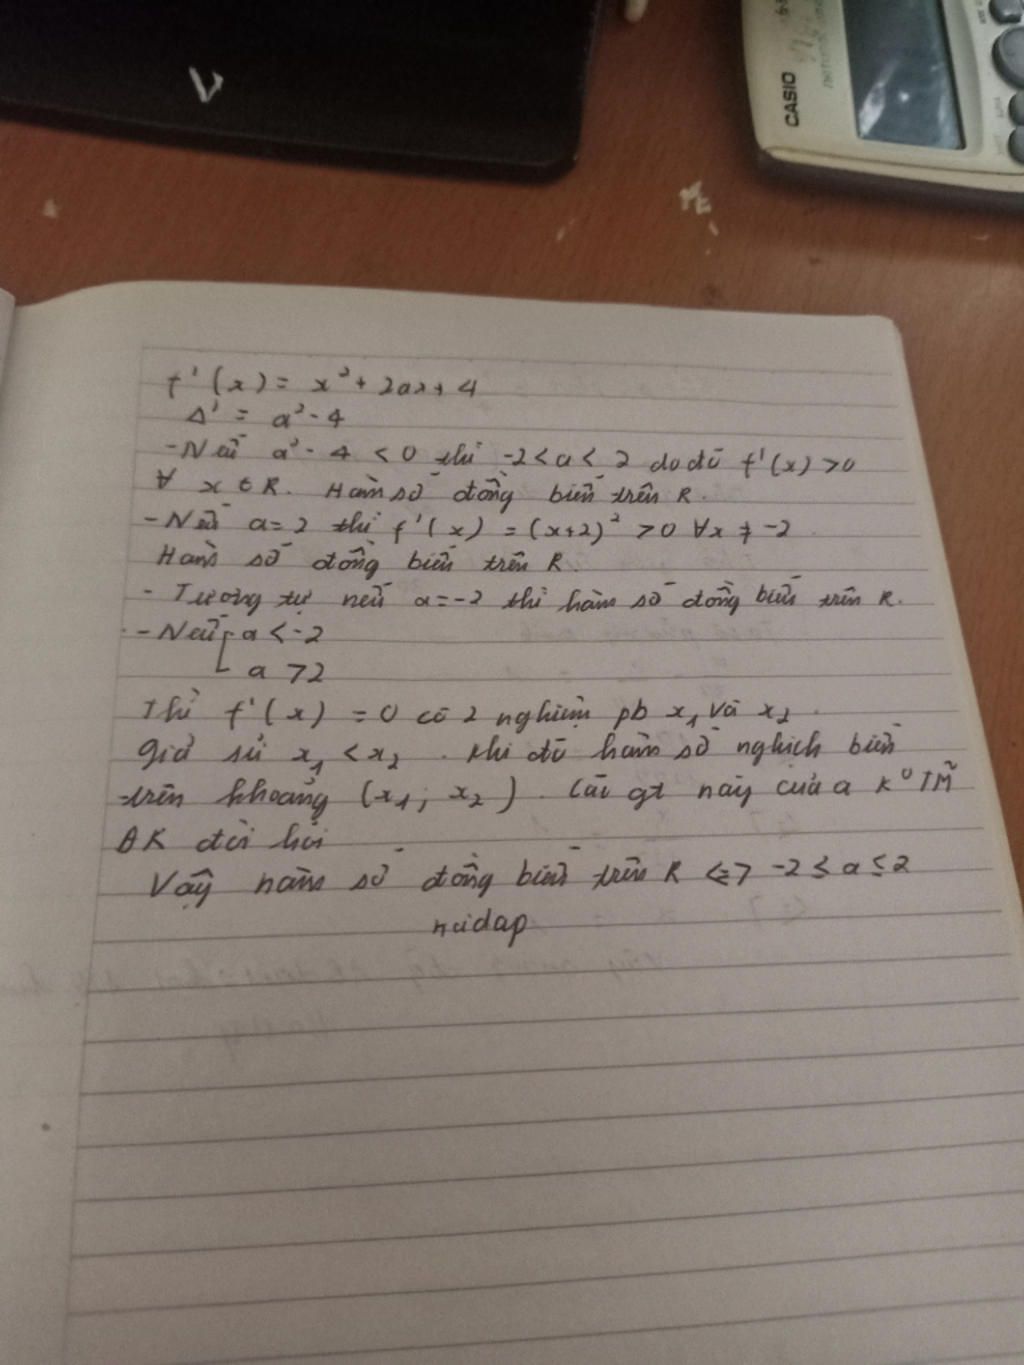 CASIO
f'(x) = x² + 2ax + 4
Δ' = a² - 4
- Nếu a² - 4 < 0 thì -2 < a < 2 do đó f'(x) > 0
∀ x ∈ R. Hàm số đồng biến trên R.
- Nếu a = 2 thì f'(x) = (x+2)² > 0 ∀x ≠ -2
Hàm số đồng biến trên R.
- Tương tự nếu a = -2 thì hàm số đồng biến trên R.
- Nếu [ a < -2
a > 2
Thì f'(x) = 0 có 2 nghiệm pb x₁ và x₂.
Giả sử x₁ < x₂. Khi đó hàm số nghịch biến
trên khoảng (x₁; x₂). Các gt này của a K⁰ TM
ĐK đòi hỏi
Vậy hàm số đồng biến trên R <=> -2 ≤ a ≤ 2
hoidap